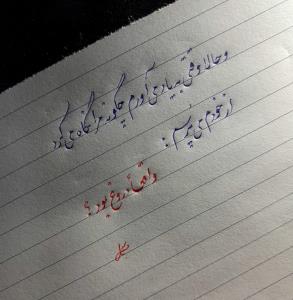 و حالا وقتی بیاد می آورم چگونه مرا نگاه می کرد
از خودم می پرسم :
واقعا دروغ بود ؟